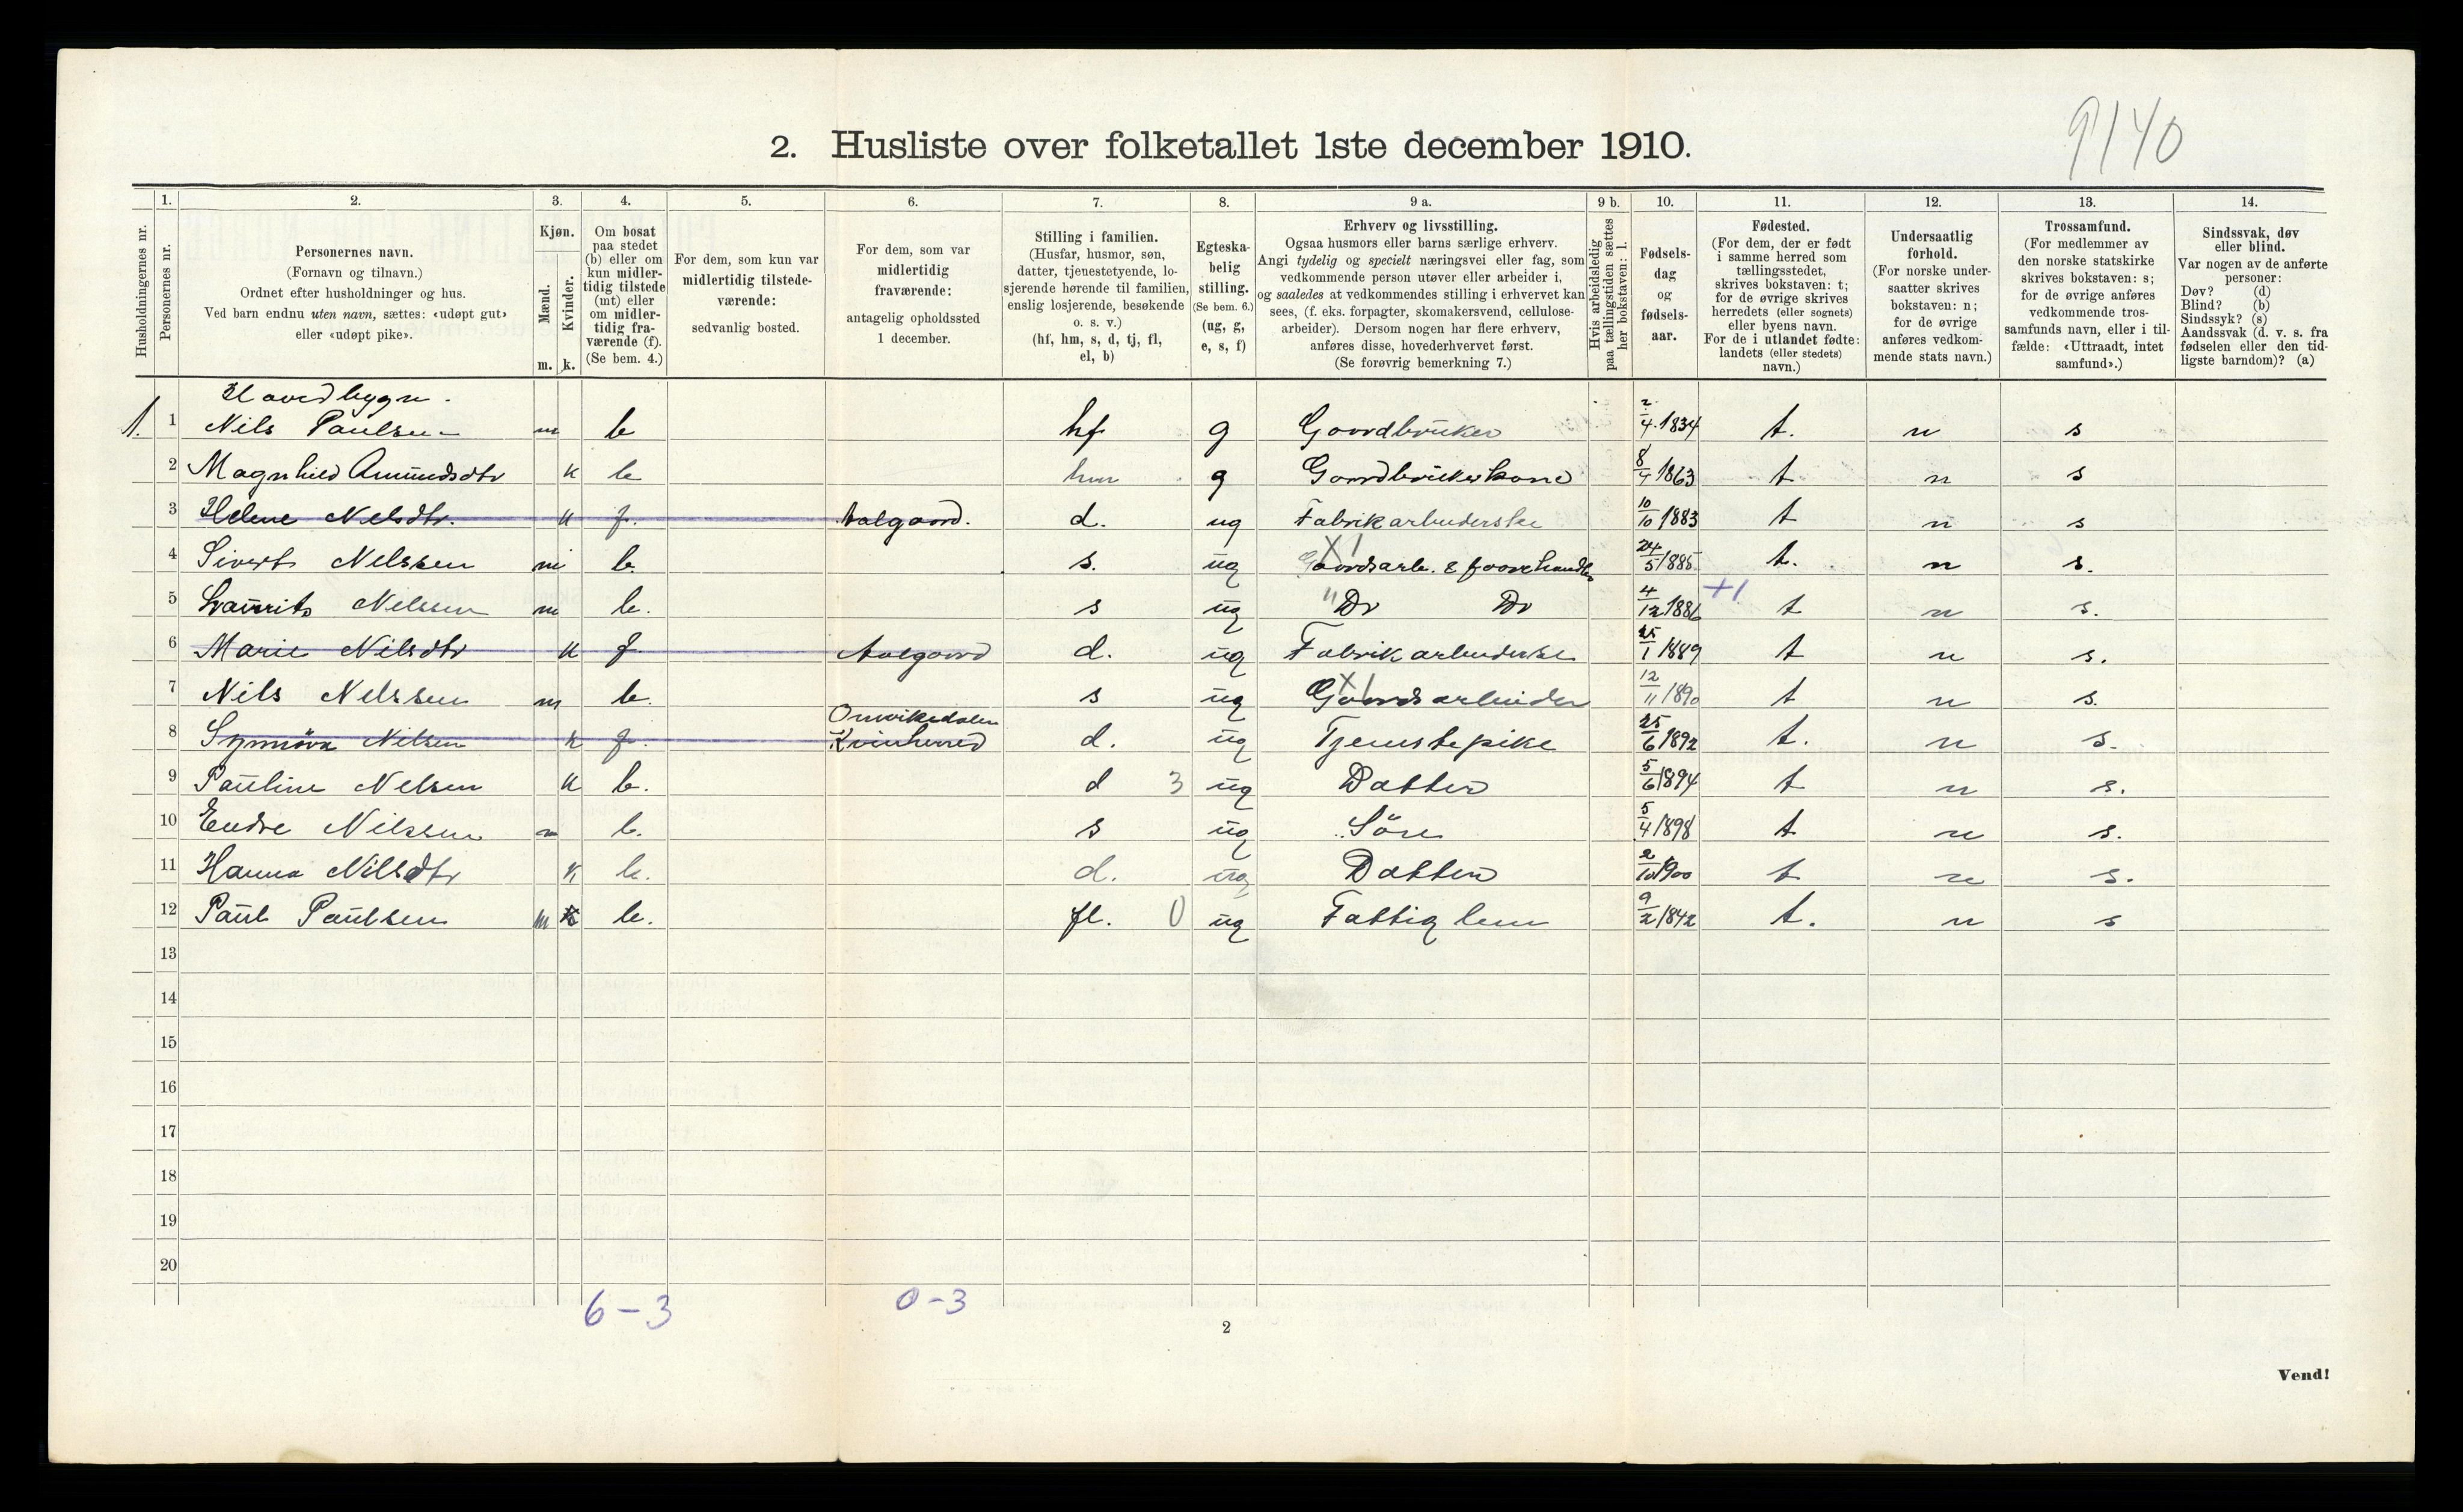 9140
2. Husliste over folketallet 1ste december 1910.
1. 2. 3. 4. 5. 6. 7. 8. 9 a. 9 b. 10. 11. 12. 13. 14.
Husholdningernes nr.
Personernes nr.
Personernes navn.
(Fornavn og tilnavn.)
Ordnet efter husholdninger og hus.
Ved barn endnu uten navn, sættes: «udøpt gut»
eller «udøpt pike».
Kjøn.
Mænd.
Kvinder.
m. k.
Om bosat
paa stedet
(b) eller om
kun midler-
tidig tilstede
(mt) eller
om midler-
tidig fra-
værende (f).
(Se bem. 4.)
For dem, som kun var
midlertidig tilstede-
værende:
sedvanlig bosted.
For dem, som var
midlertidig
fraværende:
antagelig opholdssted
1 december.
Stilling i familien.
(Husfar, husmor, søn,
datter, tjenestetyende, lo-
sjerende hørende til familien,
enslig losjerende, besøkende
o. s. v.)
(hf, hm, s, d, tj, fl,
el, b)
Egteska-
belig
stilling.
(Se bem. 6.)
(ug, g,
e, s, f)
Erhverv og livsstilling.
Ogsaa husmors eller barns særlige erhverv.
Angi tydelig og specielt næringsvei eller fag, som
vedkommende person utøver eller arbeider i,
og saaledes at vedkommendes stilling i erhvervet kan
sees, (f. eks. forpagter, skomakersvend, cellulose-
arbeider). Dersom nogen har flere erhverv,
anføres disse, hovederhvervet først.
(Se forøvrig bemerkning 7.)
Hvis arbeidsledig
paa tællingstiden sættes
her bokstaven: l.
Fødsels-
dag
og
fødsels-
aar.
Fødested.
(For dem, der er født
i samme herred som
tællingsstedet,
skrives bokstaven: t;
for de øvrige skrives
herredets (eller sognets)
eller byens navn.
For de i utlandet fødte:
landets (eller stedets)
navn.)
Undersaatlig
forhold.
(For norske under-
saatter skrives
bokstaven: n;
for de øvrige
anføres vedkom-
mende stats navn.)
Trossamfund.
(For medlemmer av
den norske statskirke
skrives bokstaven: s;
for de øvrige anføres
vedkommende tros-
samfunds navn, eller i til-
fælde: «Uttraadt, intet
samfund».)
Sindssvak, døv
eller blind.
Var nogen av de anførte
personer:
Døv? (d)
Blind? (b)
Sindssyk? (s)
Aandssvak (d. v. s. fra
fødselen eller den tid-
ligste barndom)? (a)
Hovedbygn.
1. 1 Nils Paulsen m b hf g Gaardbruker 2/4 1834 t. n s
2 Magnhild Amundsdtr k b hm g Gaardbrukerkone 8/4 1863 t n s
3 Helene Nelsdtr. k f. Aalgaard. d. ug Fabrikarbeiderske 10/10 1883 t n s
4 Sivert Nelssen m b. s. ug X 1 Gaardsarb. & faarehandler 24/5 1885 t. n s.
5 Laurits Nelssen m b. s ug " Do Do 4/12 1886 +1 t n s.
6 Marie Nilsdtr k f. Aalgaard d. ug Fabrikarbeiderske 25/1 1889 t n s.
7 Nils Nelssen m b. s ug X 1 Gaardsarbeider 12/11 1890 t n s.
8 Synnöva Nilsen k f. Omvikedalen Kvinherred d. ug Tjenestepike 25/6 1892 t. n s.
9 Pauline Nelsen k b. d 3 ug Datter 5/6 1894 t n s.
10 Endre Nilssen m b. s ug Sön 5/4 1898 t n s.
11 Hanna Nilsdtr k b. d. ug Datter 2/10 1900 t n s.
12 Paul Paulsen m k b. fl. 0 ug Fattiglem 9/2 1842 t. n s
13
14
15
16
17
18
19
20
6 – 3 0 – 3
2
Vend!